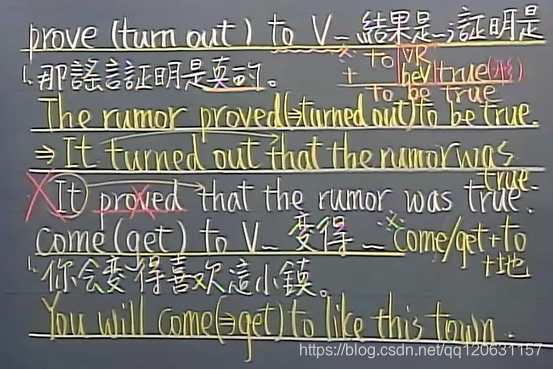 prove (turn out) to V_ 結果是…;証明是
1. 那謠言証明是真的。
× to VR
+ beV true(形)
to be true
The rumor proved(⇒turned out) to be true.
⇒ It turned out that the rumor was true.
X It proved that the rumor was true.
come (get) to V_ 変得~ × come/get + to + 地
1. 你会変得喜欢這小鎮。
You will come(⇒get) to like this town.
https://blog.csdn.net/qq120631157